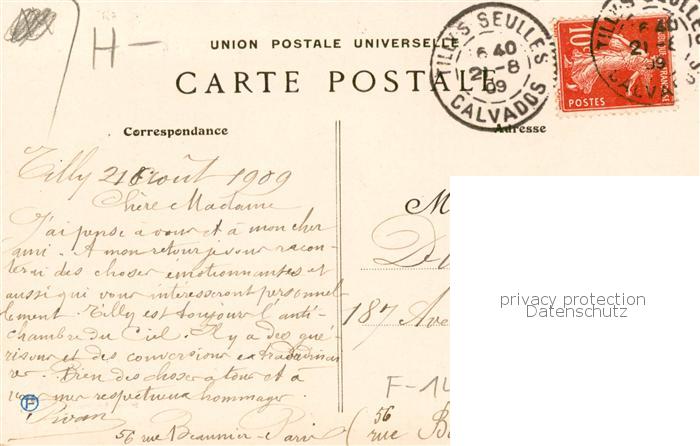 H-
UNION POSTALE UNIVERSELLE
CARTE POSTALE
TILLY-S-SEULLES
6 40
21-8
09
CALVADOS
10
POSTES
Correspondance
Adresse
Tilly 21 Août 1909
Chère Madame
J'ai pensé à vous et à mon cher
ami. A mon retour je vous racon-
terai des choses émotionnantes et
aussi qui vous intéresseront personnel-
lement. Tilly est toujours l'anti-
chambre du Ciel. Il y a des gué-
risons et des conversions extraordinai
res. Bien des choses à tous et à
vous mes respectueux hommages.
56 rue Beaunier - Paris
M
D
187 Ave
F-14
(56
rue B
privacy protection
Datenschutz
F